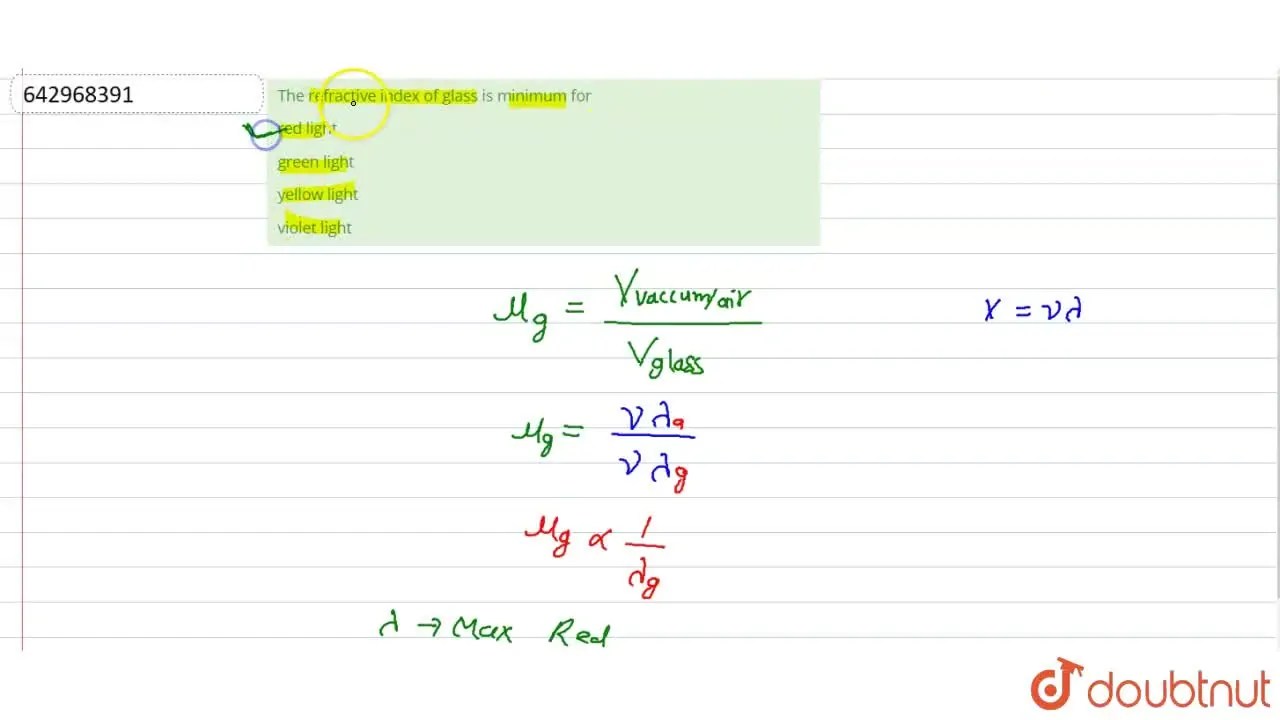 642968391
The refractive index of glass is minimum for
red light
green light
yellow light
violet light
μg = Vvaccum/air / Vglass
V = νλ
μg = νλa / νλg
μg ∝ 1 / λg
λ → Max Red
doubtnut